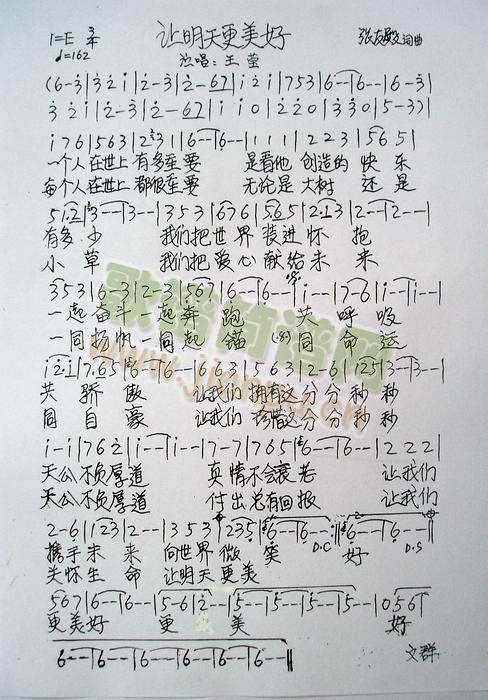 1=E 3/4 让明天更美好 张友殿词曲
♩=162 演唱:王莹
(6-3|3 2 i|2-3|2-67|i 2 i|7 5 3|6--|6--|6-3|
3 2 i|2-3|2-67|i i 0|2 2 0|3 3 0|5-3)|
i 7 6|5 6 3|2 3 1|6--|6--|1 1 1|2 2 3|5 6 5|
一个人在世上 有多重要 是看他 创造的 快 乐
每个人在世上 都很重要 无论是 大树 还 是
5 1 2|3--|3--|3 5 3|6 7 6|5 6 5|2 1 3|2--|2--|
有 多 少 我们把 世 界 装进 怀 抱
小 草 我们把 爱 心 献给 未 来
3 5 3|6-3|2-3|5 6 7|6--|6--|i--|7-6|i--|i--|
一起奋斗一起奔 跑 共 呼 吸
一同扬帆一同起 锚 同 命 运
i 2 i|7 6 5|6--|6--|6 6 3|5 6 3|2-6|1 2 5|3--|3--|
共 骄 傲 让我们 拥有这 分分 秒 秒
同 自 豪 让我们 珍惜这 分分 秒 秒
i-i|7 6 2|i--|i--|7-7|7 6 5|6--|6--|2 2 2|
天公不负厚道 真情不会衰老 让我们
天公不负厚道 付出总有回报 让我们
2-6|1 2 3|2--|3 5 3|2 3 5|6--|6--:|6--|6--|
携手 未 来 向世界 微 笑 D.C 好 D.S
关怀 生 命 让明天 更 美
5 6 7|6--|6--|5-6|2--|5--|5--|5--|5--|0 5 6|
更美好 更 美 好
6--|6--|6--|6--|6--|6--‖ 文群
歌谱简谱网
www.jianpu.cn